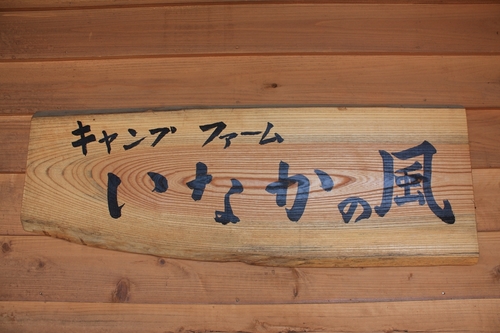 キャンプ ファーム
いなかの風